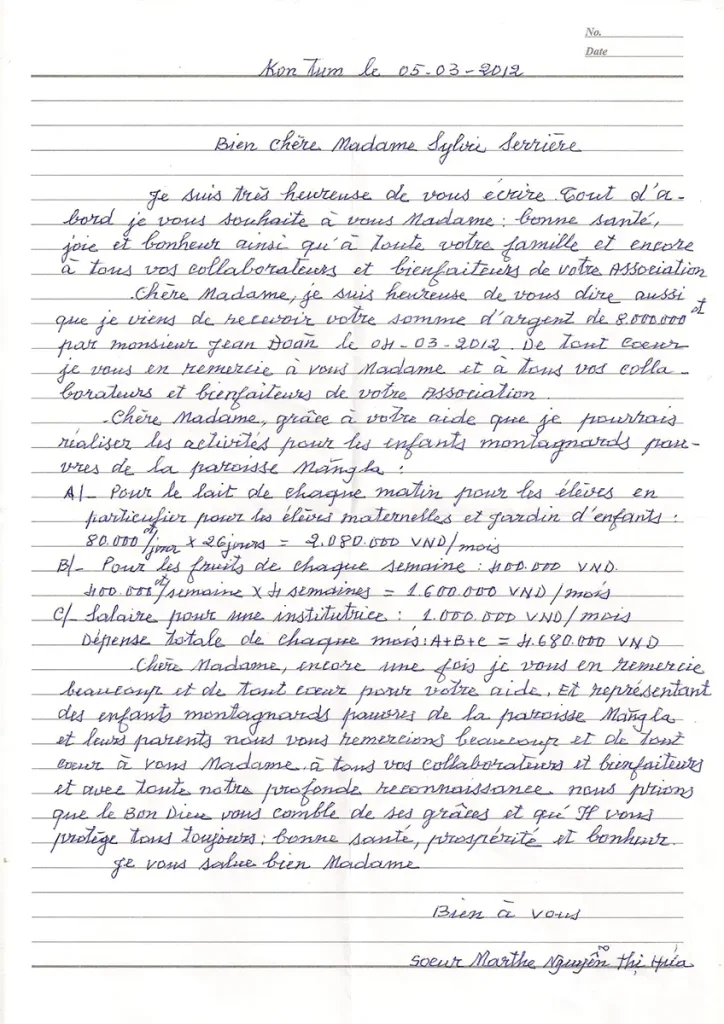 No.
Date
Kon Tum le 05-03-2012
Bien chère Madame Sylvie Serrière
Je suis très heureuse de vous écrire. Tout d'a-
bord je vous souhaite à vous Madame : bonne santé,
joie et bonheur ainsi qu'à toute votre famille et encore
à tous vos collaborateurs et bienfaiteurs de votre Association
Chère Madame, je suis heureuse de vous dire aussi
que je viens de recevoir votre somme d'argent de 8.000.000 đ
par monsieur Jean Doãn le 04-03-2012. De tout coeur
je vous en remercie à vous Madame et à tous vos colla-
borateurs et bienfaiteurs de votre Association.
-Chère Madame, grâce à votre aide que je pourrais
réaliser les activités pour les enfants montagnards pau-
vres de la paroisse Măngla :
A/- Pour le lait de chaque matin pour les élèves en
particulier pour les élèves maternelles et jardin d'enfants :
80.000 đ/jour x 26 jours = 2.080.000 VND/mois
B/- Pour les fruits de chaque semaine : 400.000 VND.
400.000 đ/semaine x 4 semaines = 1.600.000 VND/mois
C/- Salaire pour une institutrice : 1.000.000 VND/mois
Dépense totale de chaque mois : A+B+C = 4.680.000 VND
Chère Madame, encore une fois je vous en remercie
beaucoup et de tout cœur pour votre aide. Et représentant
des enfants montagnards pauvres de la paroisse Măngla
et leurs parents nous vous remercions beaucoup et de tout
cœur à vous Madame à tous vos collaborateurs et bienfaiteurs
et avec toute notre profonde reconnaissance nous prions
que le Bon Dieu vous comble de ses grâces et qu'Il vous
protège tous toujours : bonne santé, prospérité et bonheur.
Je vous salue bien Madame
Bien à vous
Soeur Marthe Nguyễn Thị